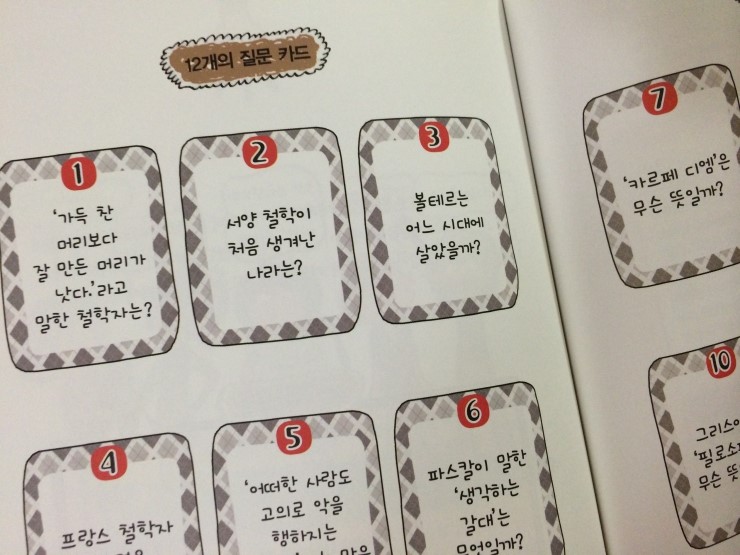 12개의 질문 카드
1
'가득 찬
머리보다
잘 만든 머리가
낫다.'라고
말한 철학자는?
2
서양 철학이
처음 생겨난
나라는?
3
볼테르는
어느 시대에
살았을까?
4
프랑스 철학자
5
'어떠한 사람도
고의로 악을
행하지는
6
파스칼이 말한
'생각하는
갈대'는
무엇일까?
7
'카르페 디엠'은
무슨 뜻일까?
10
무슨 뜻